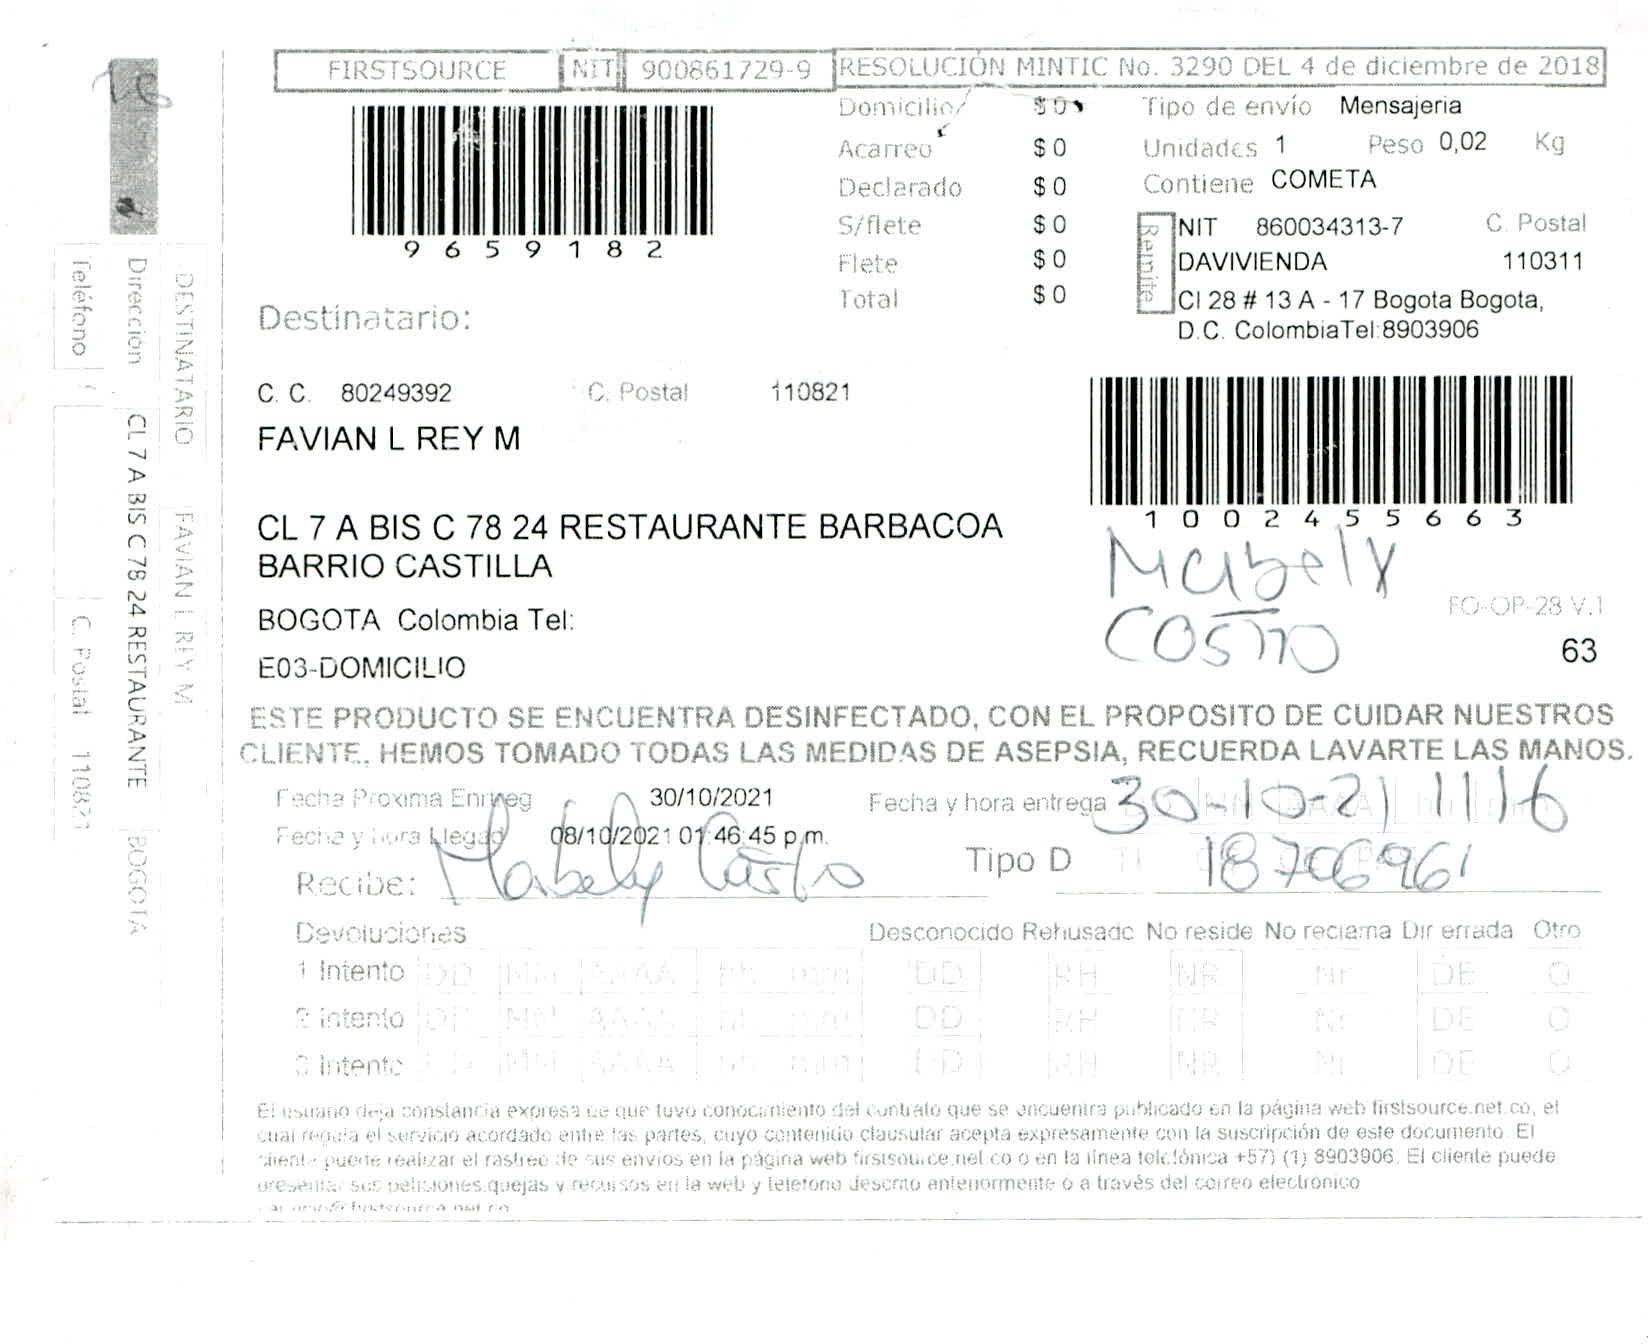 FIRSTSOURCE NIT 900861729-9 RESOLUCIÓN MINTIC No. 3290 DEL 4 de diciembre de 2018
9659182
Domicilio/ $ 0
Acarreo $ 0
Declarado $ 0
S/flete $ 0
Flete $ 0
Total $ 0
Tipo de envío Mensajeria
Unidades 1 Peso 0,02 Kg
Contiene COMETA
Remite
NIT 860034313-7 C. Postal
DAVIVIENDA 110311
Cl 28 # 13 A - 17 Bogota Bogota,
D.C. ColombiaTel:8903906
Destinatario:
C. C. 80249392 C. Postal 110821
FAVIAN L REY M
1002455663
CL 7 A BIS C 78 24 RESTAURANTE BARBACOA
BARRIO CASTILLA
BOGOTA Colombia Tel:
E03-DOMICILIO
Mabely
Castro
FO-OP-28 V.1
63
ESTE PRODUCTO SE ENCUENTRA DESINFECTADO, CON EL PROPOSITO DE CUIDAR NUESTROS
CLIENTE, HEMOS TOMADO TODAS LAS MEDIDAS DE ASEPSIA, RECUERDA LAVARTE LAS MANOS.
Fecha Proxima Entreg 30/10/2021 Fecha y hora entrega 30-10-21 1116
Fecha y hora Llegad 08/10/2021 01:46:45 p.m.
Recibe: Mabely Castro Tipo D 18706961
Devoluciones Desconocido Rehusado No reside No reclama Dir errada Otro
1 Intento DD MM AAAA hh mm DD RH NR Nr DE O
2 Intento DD MM AAAA hh mm DD RH NR Nr DE O
3 Intento DD MM AAAA hh mm DD RH NR Nr DE O
El usuario deja constancia expresa de que tuvo conocimiento del contrato que se encuentra publicado en la página web firstsource.net.co, el
cual regula el servicio acordado entre las partes, cuyo contenido clausular acepta expresamente con la suscripción de este documento. El
cliente puede realizar el rastreo de sus envios en la página web firstsource.net.co o en la línea telefónica +57) (1) 8903906. El cliente puede
presentar sus peticiones,quejas y recursos en la web y telefono descrito anteriormente o a través del correo electronico
DESTINATARIO FAVIAN L REY M
Dirección CL 7 A BIS C 78 24 RESTAURANTE BOGOTA
Teléfono C. Postal 110821